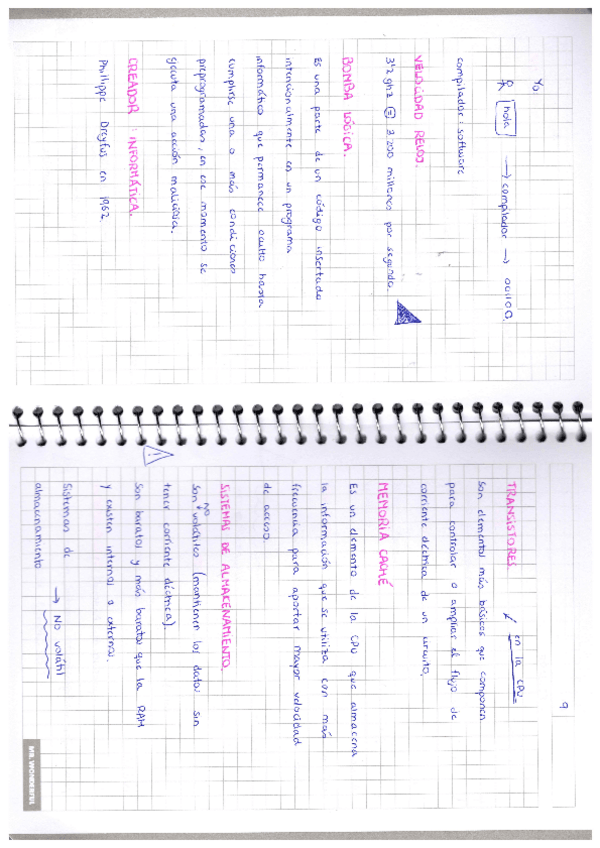 Yo
hola → compilador → 001100,
compilador: software
VELOCIDAD RELOJ.
3'2 ghz = 3.200 millones por segundo.
BOMBA LÓGICA.
Es una parte de un código insertada
intencionalmente en un programa
informático que permanece oculto hasta
cumplirse una o más condiciones
preprogramadas, en ese momento se
ejecuta una acción maliciosa.
CREADOR : INFORMÁTICA.
Phillippe Dreyfus en 1962
9
TRANSISTORES. en la CPU
Son elementos más básicos que componen
para controlar o ampliar el flujo de
corriente eléctrica de un circuito.
MEMORIA CACHÉ
Es un elemento de la CPU que almacena
la información que se utiliza con más
frecuencia para aportar mayor velocidad
de acceso.
SISTEMAS DE ALMACENAMIENTO.
Son no volátiles (mantienen los datos sin
tener corriente eléctrica).
Son baratos y más baratos que la RAM
y existen internos o externos.
Sistemas de
almacenamiento → No volátil
MR. WONDERFUL